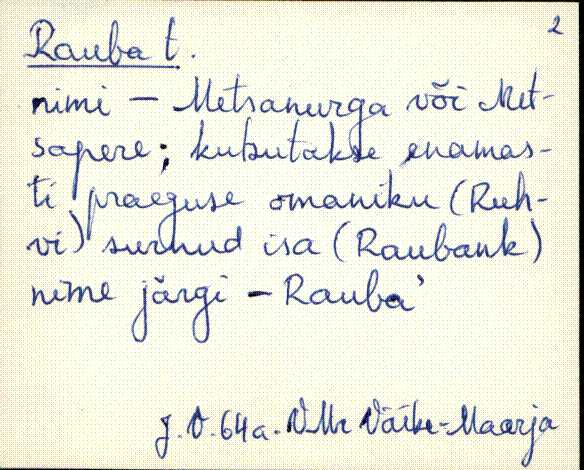 2
Rauba t.
nimi – Metsanurga või Met-
sapere; kutsutakse enamas-
ti praeguse omaniku (Ruh-
vi) surnud isa (Raubank)
nime järgi – Rauba'
J. V. 64a. VMr Väike-Maarja